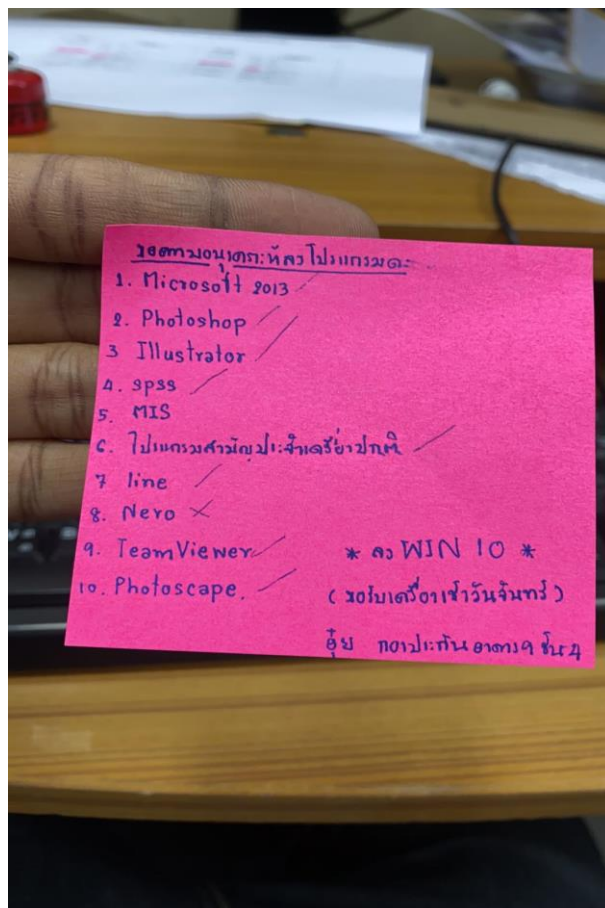 ขอความอนุเคราะห์ลงโปรแกรมค่ะ
1. Microsoft 2013
2. Photoshop
3 Illustrator
4. spss
5. MIS
6. โปรแกรมสามัญประจำเครื่องปกติ
7 line
8. Nero
9. TeamViewer
* ลง WIN 10 *
10. Photoscape.
(ขอรับเครื่องเช้าวันจันทร์)
อุ๋ย กองประกัน อาคาร 9 ชั้น 4